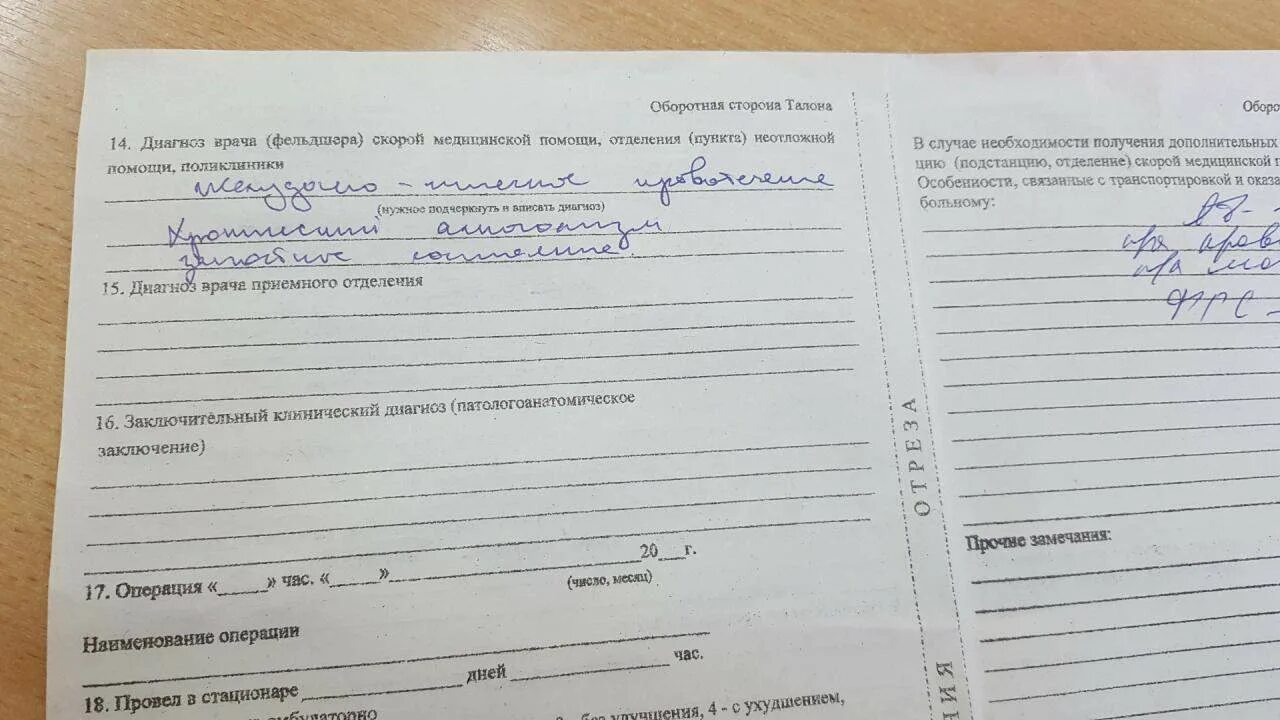 Оборотная сторона Талона
14. Диагноз врача (фельдшера) скорой медицинской помощи, отделения (пункта) неотложной
помощи, поликлиники
желудочно-кишечное кровотечение
(нужное подчеркнуть и вписать диагноз)
Хронический алкоголизм
запойное состояние.
15. Диагноз врача приемного отделения
16. Заключительный клинический диагноз (патологоанатомическое
заключение)
17. Операция «_____» час. «_____»____________________20___г.
(число, месяц)
Наименование операции
18. Провел в стационаре ______________ дней ______________ час.
без улучшения, 4 - с ухудшением,
ОТРЕЗА
Оборо
В случае необходимости получения дополнительных
цию (подстанцию, отделение) скорой медицинской п
Особенности, связанные с транспортировкой и оказа
больному:
Прочие замечания: